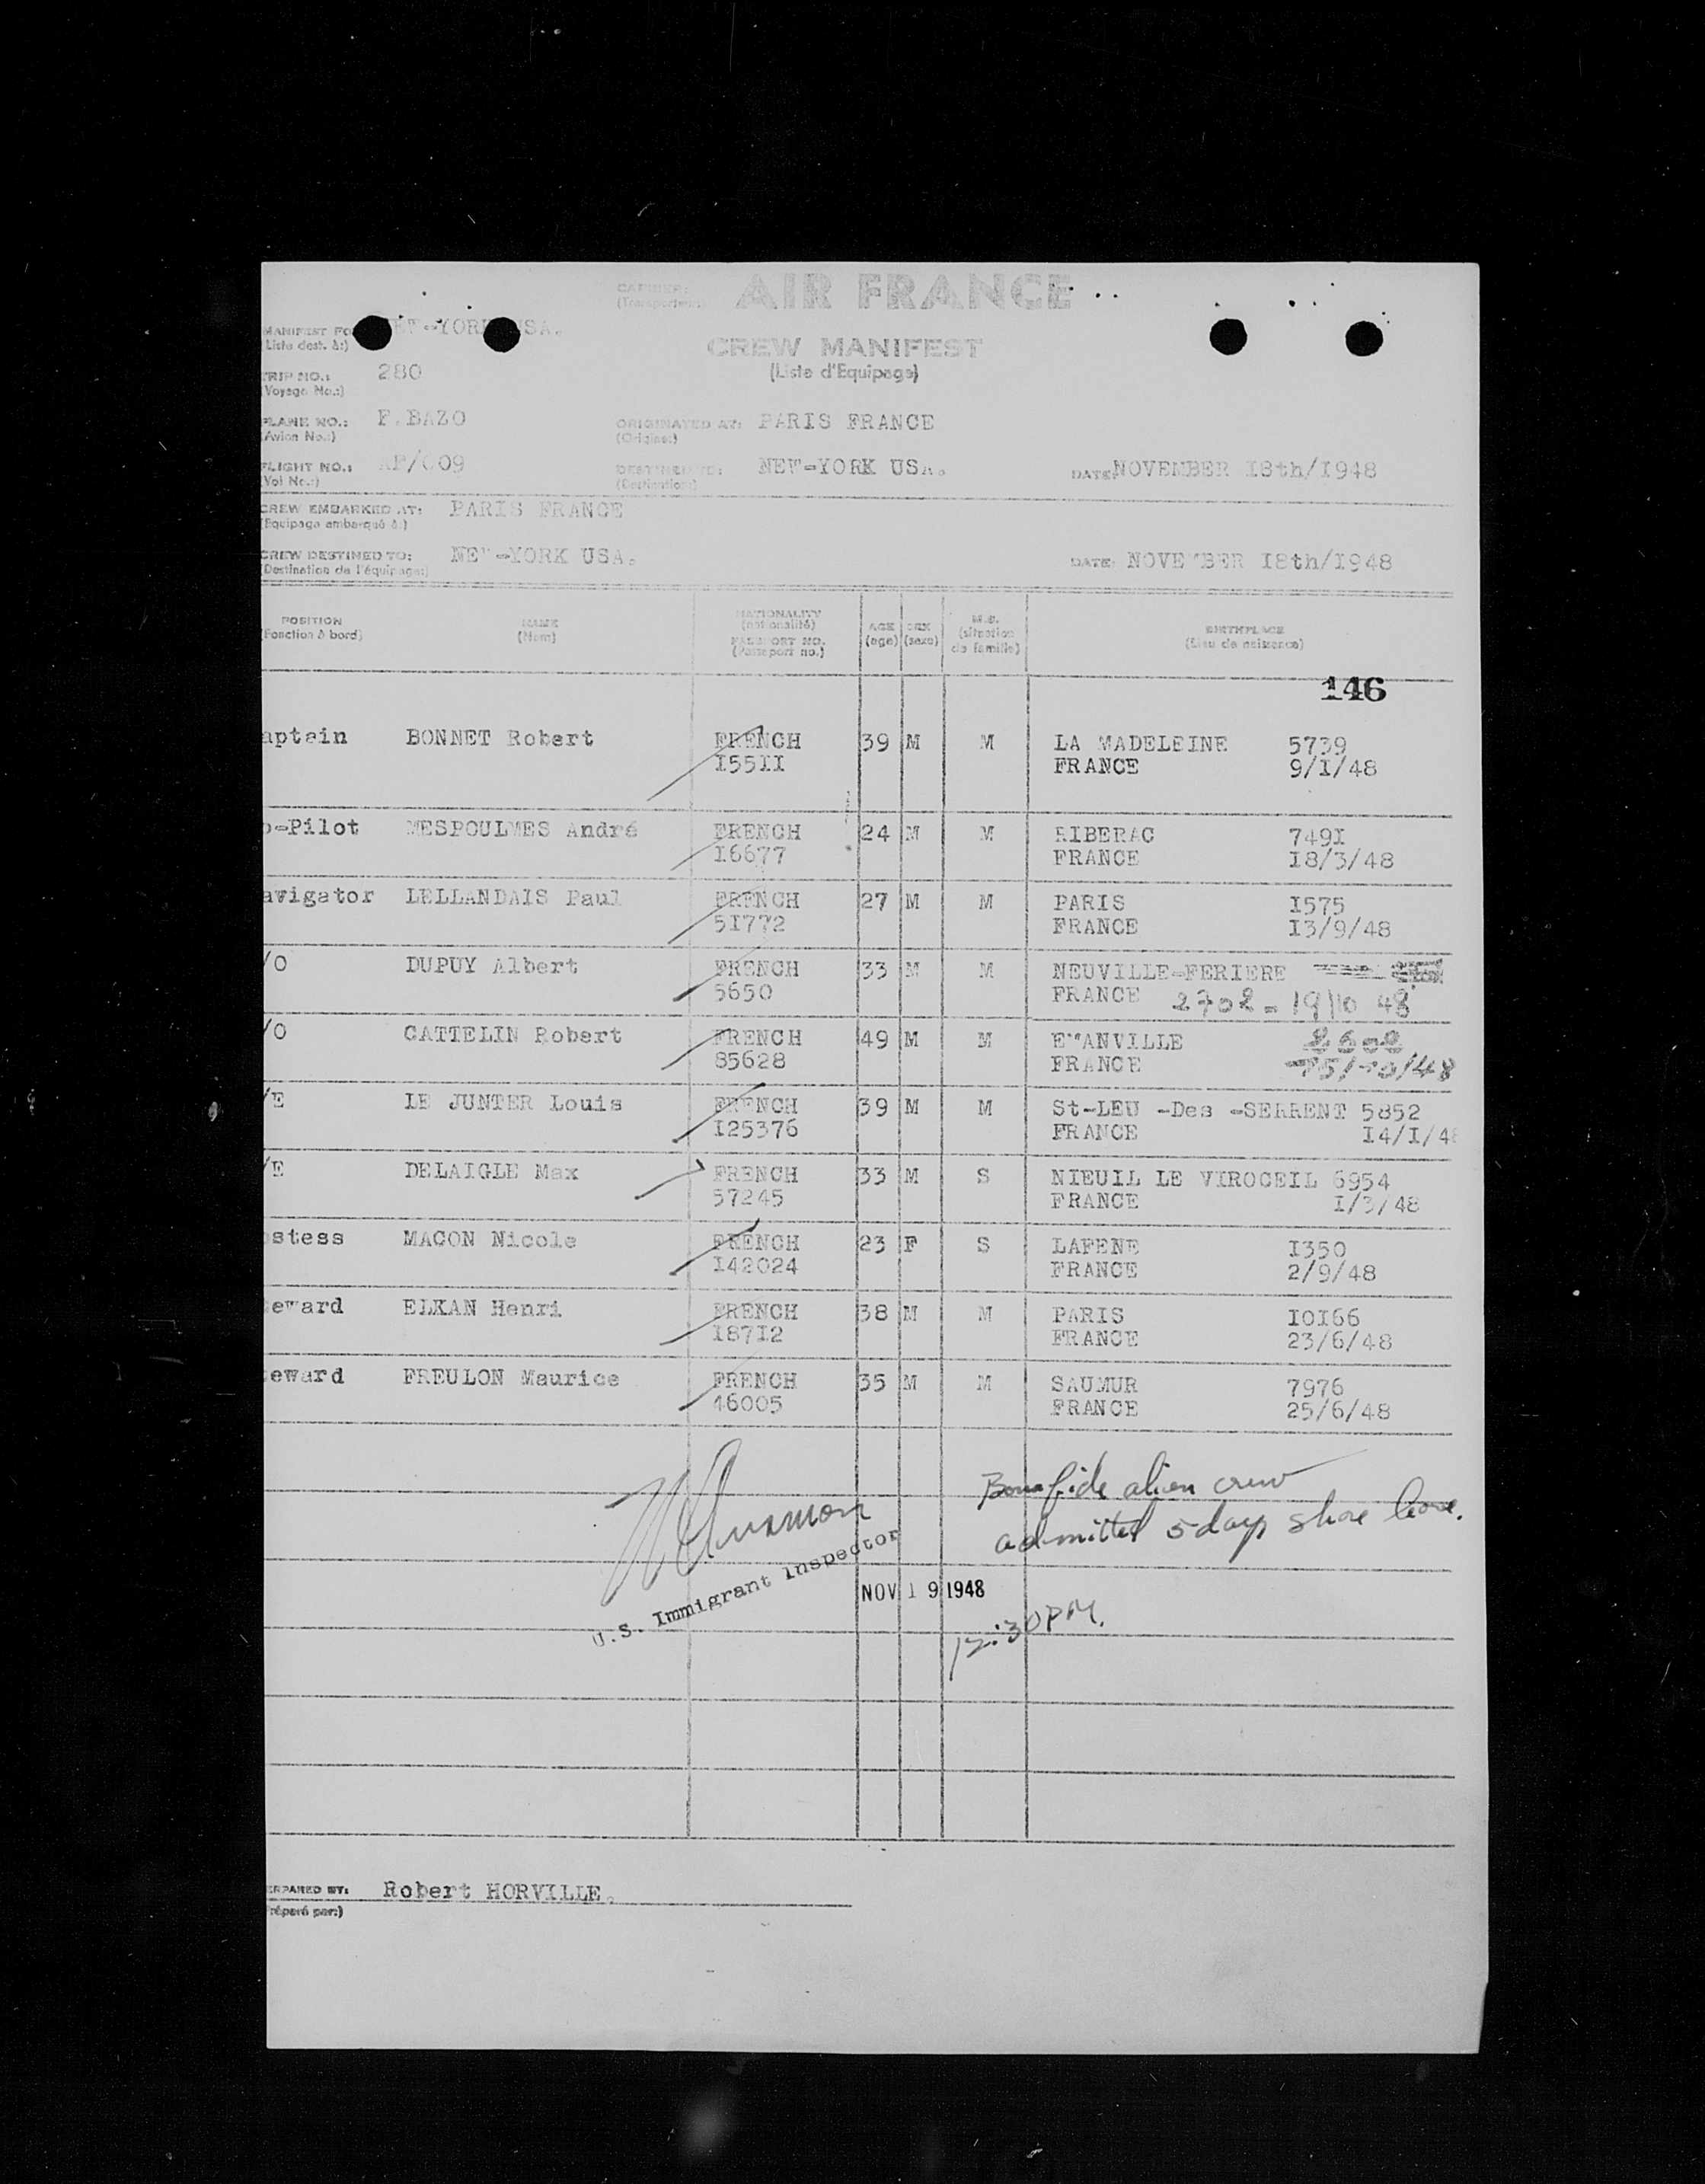 CARRIER: AIR FRANCE
(Transporteur:)
MANIFEST FO NEW-YORK USA.
(Liste dest. à:)
CREW MANIFEST
(Liste d'Equipage)
TRIP NO.: 280
(Voyage No.:)
PLANE NO.: F.BAZO ORIGINATED AT: PARIS FRANCE
(Avion No.:) (Origine:)
FLIGHT NO.: AF/009 DESTINED TO: NEW-YORK USA. DATE: NOVEMBER I8th/I948
(Vol No.:) (Destination:)
CREW EMBARKED AT: PARIS FRANCE
(Equipage embarqué à:)
CREW DESTINED TO: NEW-YORK USA. DATE: NOVEMBER I8th/I948
(Destination de l'équipage:)
POSITION NAME NATIONALITY AGE SEX M.S. BIRTHPLACE
(Fonction à bord) (Nom) (nationalité) (age) (sexe) (situation de famille) (Lieu de naissance)
PASSPORT NO.
(Passeport no.)
146
aptain BONNET Robert FRENCH 39 M M LA MADELEINE 5739
I55II FRANCE 9/I/48
o-Pilot MESPOULMES André FRENCH 24 M M RIBERAC 749I
I6677 FRANCE I8/3/48
avigator LELLANDAIS Paul FRENCH 27 M M PARIS I575
5I772 FRANCE I3/9/48
/O DUPUY Albert FRENCH 33 M M NEUVILLE-FERIERE
5650 FRANCE 2702 - 19/10 48
/O CATTELIN Robert FRENCH 49 M M E"ANVILLE
85628 FRANCE
/E LE JUNTER Louis FRENCH 39 M M St-LEU -Des -SERRENT 5852
I25376 FRANCE I4/I/48
/E DELAIGLE Max FRENCH 33 M S NIEUIL LE VIROCEIL 6954
57245 FRANCE I/3/48
ostess MACON Nicole FRENCH 23 F S LAFENE I350
I42024 FRANCE 2/9/48
eward ELKAN Henri FRENCH 38 M M PARIS I0I66
I87I2 FRANCE 23/6/48
eward FREULON Maurice FRENCH 35 M M SAUMUR 7976
46005 FRANCE 25/6/48
Bonafide alien crew
admitted 5 days shore leave.
U.S. Immigrant Inspector
NOV 19 1948
12:30 PM.
EPARED BY: Robert HORVILLE.
réparé par:)